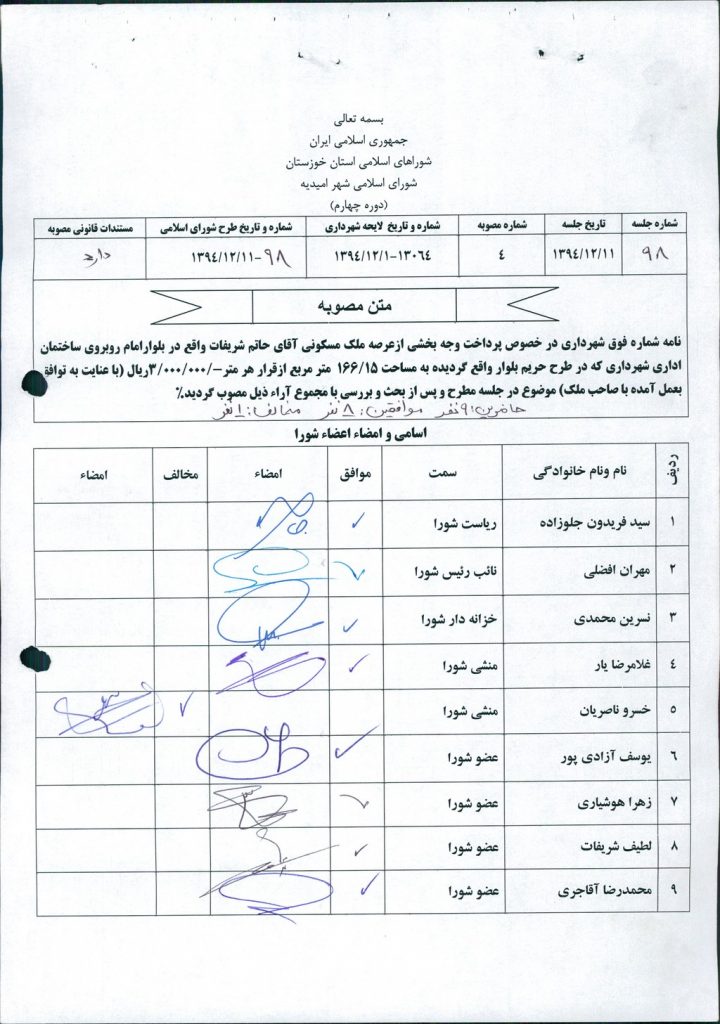 بسمه تعالی
جمهوری اسلامی ایران
شوراهای اسلامی استان خوزستان
شورای اسلامی شهر امیدیه
(دوره چهارم)
شماره جلسه تاریخ جلسه شماره مصوبه شماره و تاریخ لایحه شهرداری شماره و تاریخ طرح شورای اسلامی مستندات قانونی مصوبه
۹۸ ۱۳۹٤/۱۲/۱۱ ٤ ۱۳۹٤/۱۲/۱-۱۳۰٦٤ ۱۳۹٤/۱۲/۱۱-۹۸ دارد
متن مصوبه
نامه شماره فوق شهرداری در خصوص پرداخت وجه بخشی ازعرصه ملک مسکونی آقای حاتم شریفات واقع در بلوارامام روبروی ساختمان
اداری شهرداری که در طرح حریم بلوار واقع گردیده به مساحت ۱٦٦/۱۵ متر مربع ازقرار هر متر-/۳/۰۰۰/۰۰۰ریال (با عنایت به توافق
بعمل آمده با صاحب ملک) موضوع در جلسه مطرح و پس از بحث و بررسی با مجموع آراء ذیل مصوب گردید.٪
حاضرین: ۹ نفر موافقین: ۸ نفر مخالف: ۱ نفر
اسامی و امضاء اعضاء شورا
ردیف نام ونام خانوادگی سمت موافق امضاء مخالف امضاء
۱ سید فریدون جلوزاده ریاست شورا ✓
۲ مهران افضلی نائب رئیس شورا ✓
۳ نسرین محمدی خزانه دار شورا ✓
٤ غلامرضا یار منشی شورا ✓
۵ خسرو ناصریان منشی شورا ✓
٦ یوسف آزادی پور عضو شورا ✓
۷ زهرا هوشیاری عضو شورا ✓
۸ لطیف شریفات عضو شورا ✓
۹ محمدرضا آقاجری عضو شورا ✓